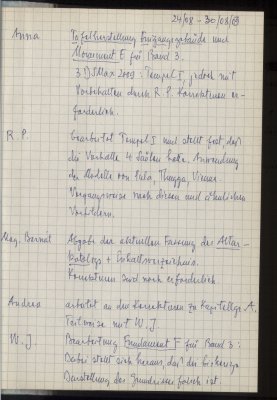 24/08 - 30/08/09
Anna Tafelherstellung Eingangsgebäude und
Monument E für Band 3.
3DSMax 2009: Tempel I, jedoch mit
Vorbehalten durch R.P. Korrekturen er-
forderlich.
R.P. bearbeitet Tempel I und stellt fest daß
die Vorhalle 4 Säulen hatte. Anwendung
der Modelle von
Vorgangsweise nach diesen und ähnlichen
Vorbildern.
Mag. Bernát Abgabe der aktuellen Fassung des Altar-
Katalogs + Inhaltsverzeichnis.
Korrekturen sind noch erforderlich.
Andrea arbeitet an den Korrekturen zu Kapitell A.
Teilweise mit W.J.
W.J. Bearbeitung Fundament F für Band 3:
Dabei stellt sich heraus, daß die bisherige
Darstellung des Grundrisses falsch ist.